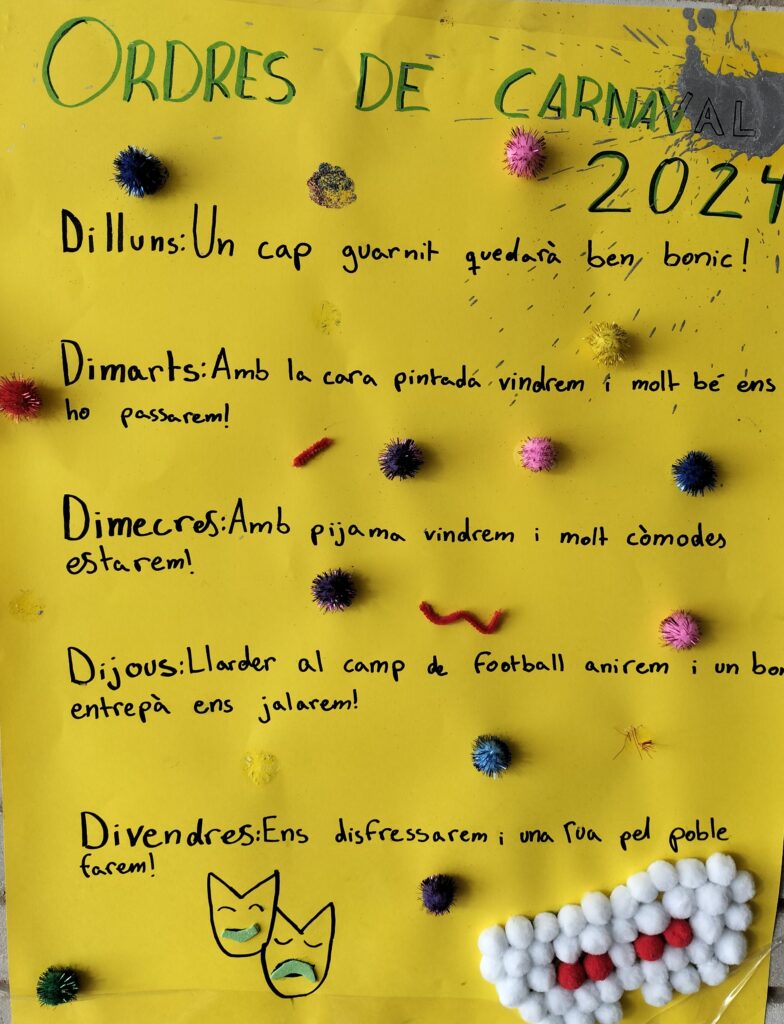 ORDRES DE CARNAVAL
2024
Dilluns: Un cap guarnit quedarà ben bonic!
Dimarts: Amb la cara pintada vindrem i molt bé ens
ho passarem!
Dimecres: Amb pijama vindrem i molt còmodes
estarem!
Dijous: Llarder al camp de football anirem i un bon
entrepà ens jalarem!
Divendres: Ens disfressarem i una rua pel poble
farem!